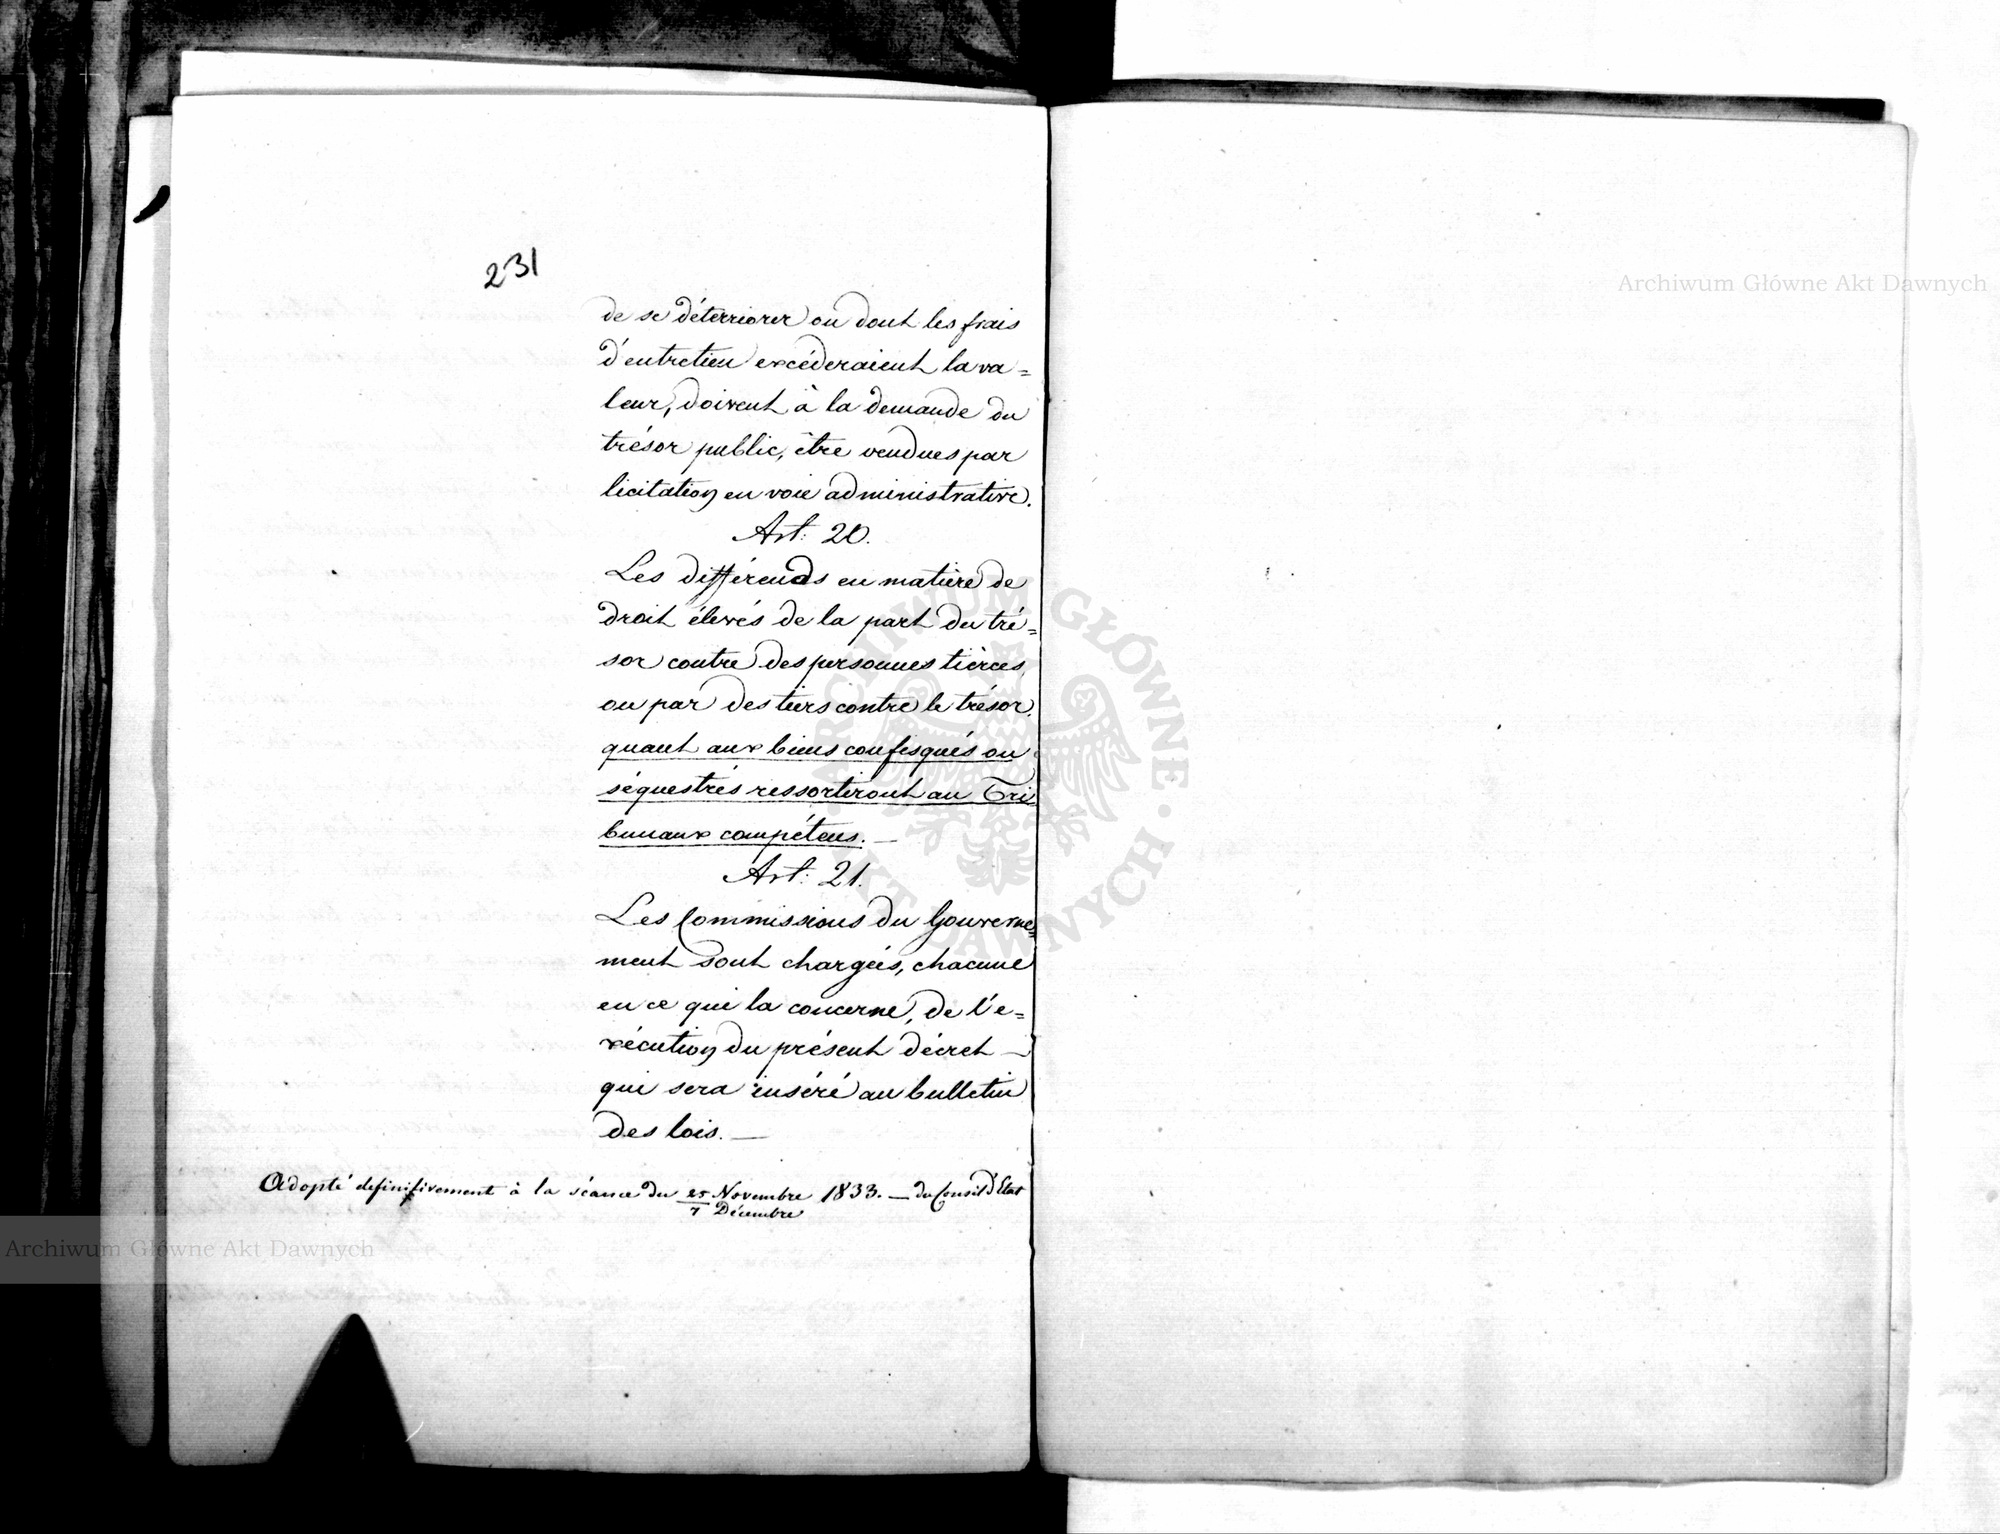 231
de se déterriorer ou dont les frais
d'entretien excéderaient la va=
leur, doivent à la demande du
trésor public, être vendues par
licitation en voie administrative.
Art: 20.
Les différends en matière de
droit élevés de la part du tré=
sor contre des personnes tièrces,
ou par des tiers contre le trésor,
quant aux biens confisqués ou
séquestrés ressortiront au Tri
bunaux compétens. —
Art: 21.
Les Commissions du Gouverne=
ment sont chargées, chacune
en ce qui la concerne, de l'e=
xécution du présent décret —
qui sera inséré au bulletin
des lois. —
Adopté definitivement à la séance du 25 Novembre 1833. — du Conseil d'Etat
7 Décembre
Archiwum Główne Akt Dawnych
Archiwum Główne Akt Dawnych
ARCHIWUM GŁÓWNE · AKT DAWNYCH ·